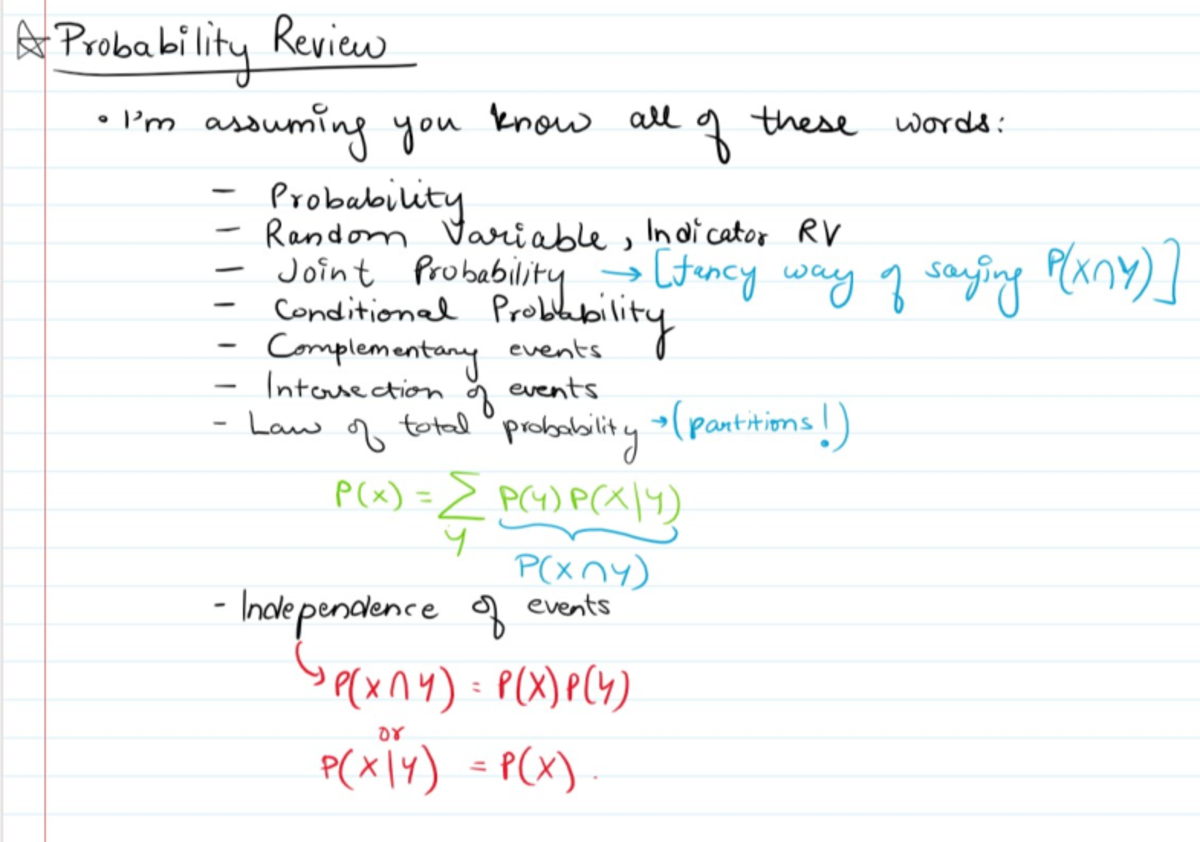 ☆ Probability Review
• I'm assuming you know all of these words:
- Probability
- Random Variable, Indicator RV
- Joint Probability → [fancy way of saying P(X∩Y)]
- Conditional Probability
- Complementary events
- Intersection of events
- Law of total probability → (partitions!)
P(X) = ∑ P(Y) P(X|Y)
Y
P(X∩Y)
- Independence of events
↳ P(X∩Y) = P(X)P(Y)
or
P(X|Y) = P(X).